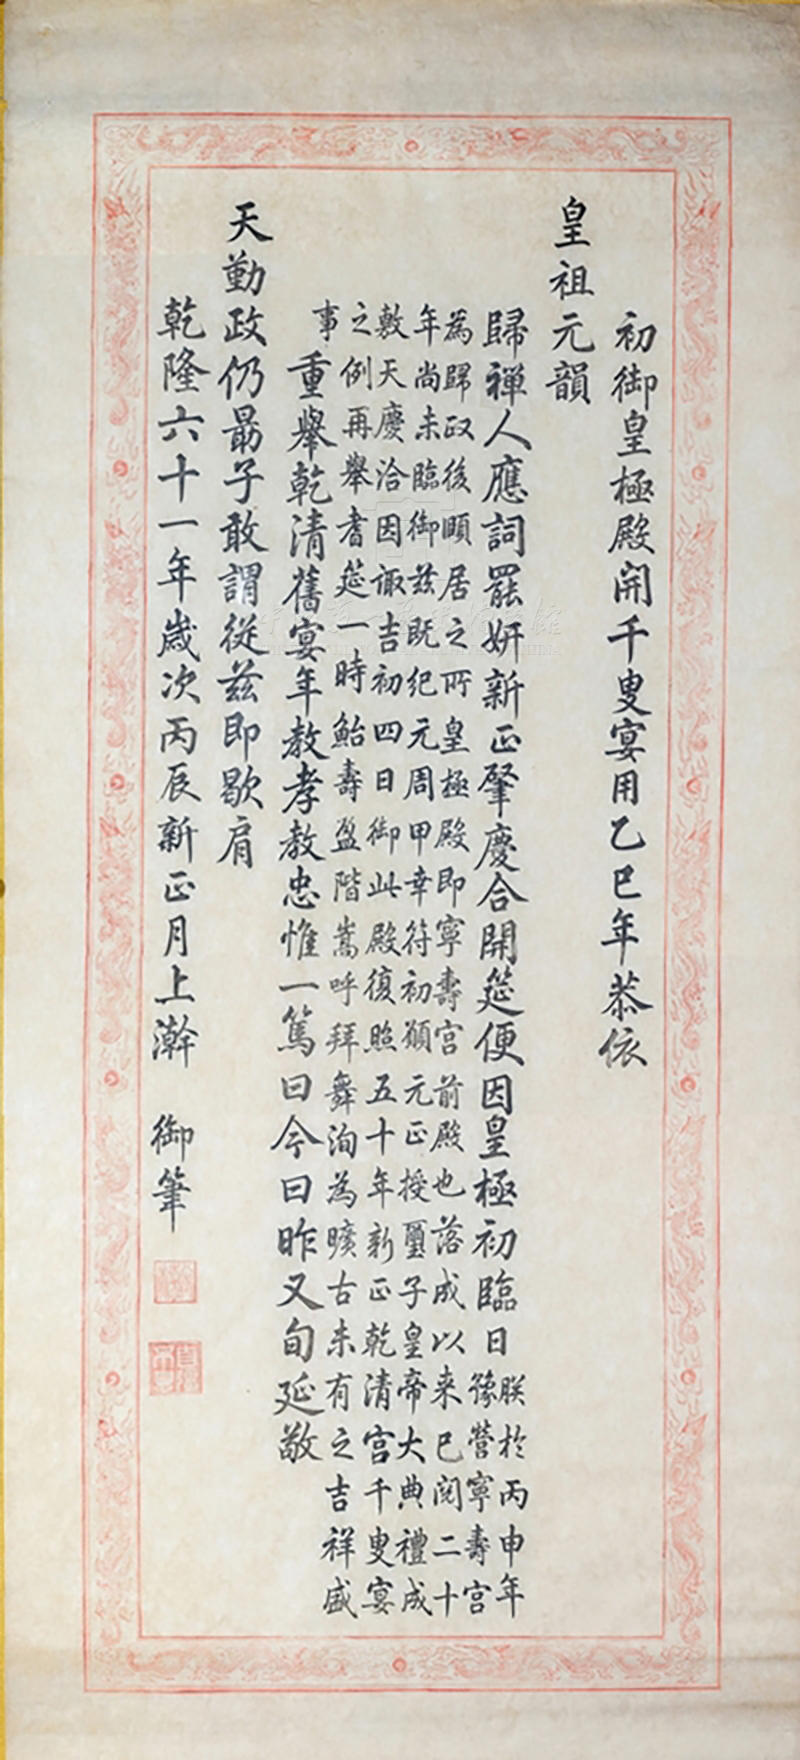 初御皇極殿開千叟宴用乙巳年恭依
皇祖元韻
歸禪人應詞罷妍新正肇慶合開筵便因皇極初臨日
朕於丙申年
豫營寧壽宮
為歸政後頤居之所皇極殿即寧壽宮前殿也落成以來已閱二十
年尚未臨御茲既紀元周甲幸符初願元正授璽子皇帝大典禮成
敷天慶洽因諏吉初四日御此殿復照五十年新正乾清宮千叟宴
之例再舉耆筵一時鮐壽盈階嵩呼拜舞洵為曠古未有之吉祥盛
事
重舉乾清舊宴年教孝教忠惟一篤曰今曰昨又旬延敬
天勤政仍勗子敢謂從茲即歇肩
乾隆六十一年歲次丙辰新正月上澣 御筆